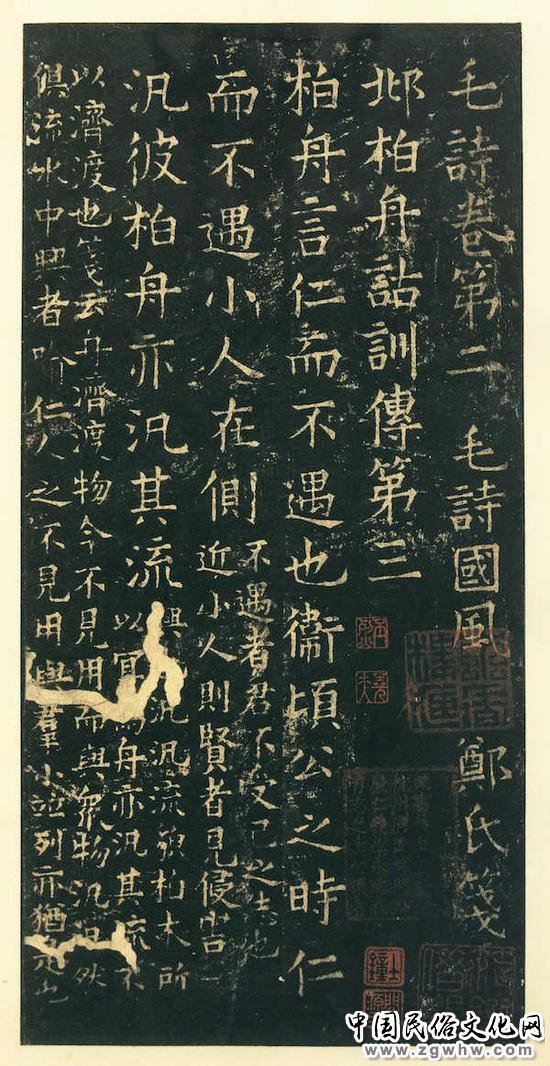 毛詩卷第二 毛詩國風 鄭氏箋
邶柏舟詁訓傳第三
柏舟言仁而不遇也衞頃公之時仁
而不遇小人在側
不遇者君不受己之志也
近小人則賢者見侵害
汎彼柏舟亦汎其流
興 汎汎流皃柏木所
以宜為舟亦汎其流不
以濟渡也箋云舟濟渡物今不見用而與衆物汎汎然
俱流水中興者喻仁人之不見用與羣小並列亦猶是也
中国民俗文化网
www.zgwhw.com